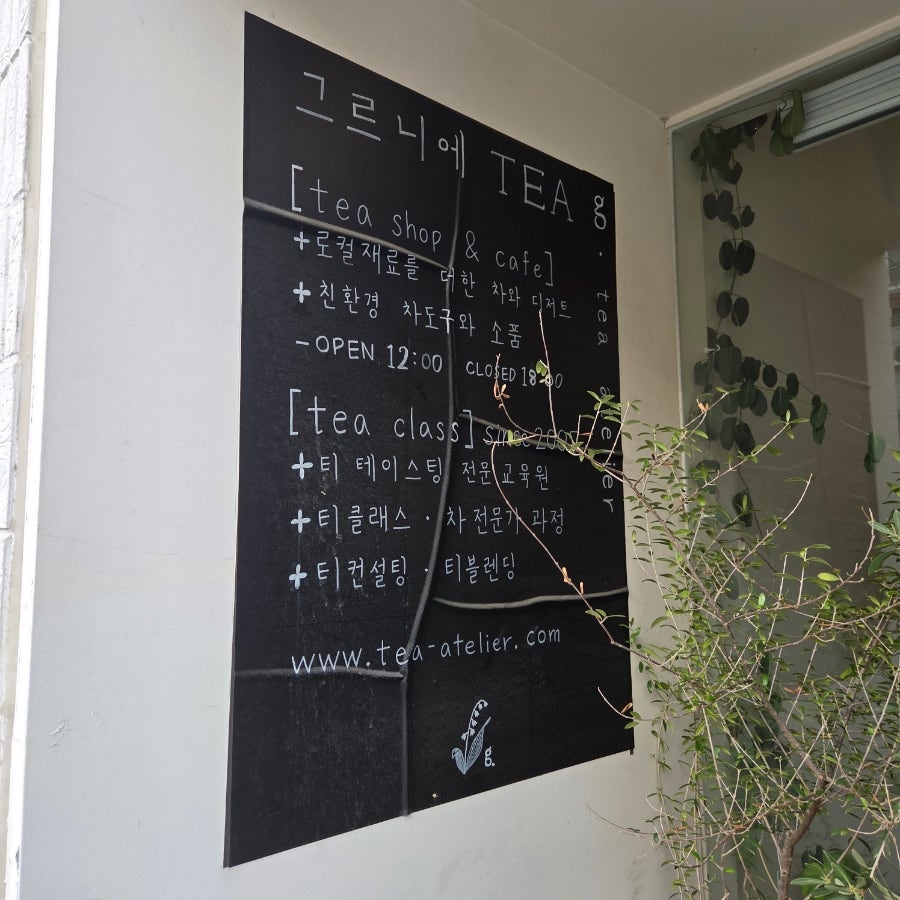 그르니에 TEA
[tea shop & cafe]
+로컬재료를 더한 차와 디저트
+친환경 차도구와 소품
-OPEN 12:00 CLOSED 18:00
[tea class] since
+티 테이스팅 전문교육원
+티클래스 · 차전문가 과정
+티컨설팅 · 티블렌딩
www.tea-atelier.com
g.
g. tea atelier